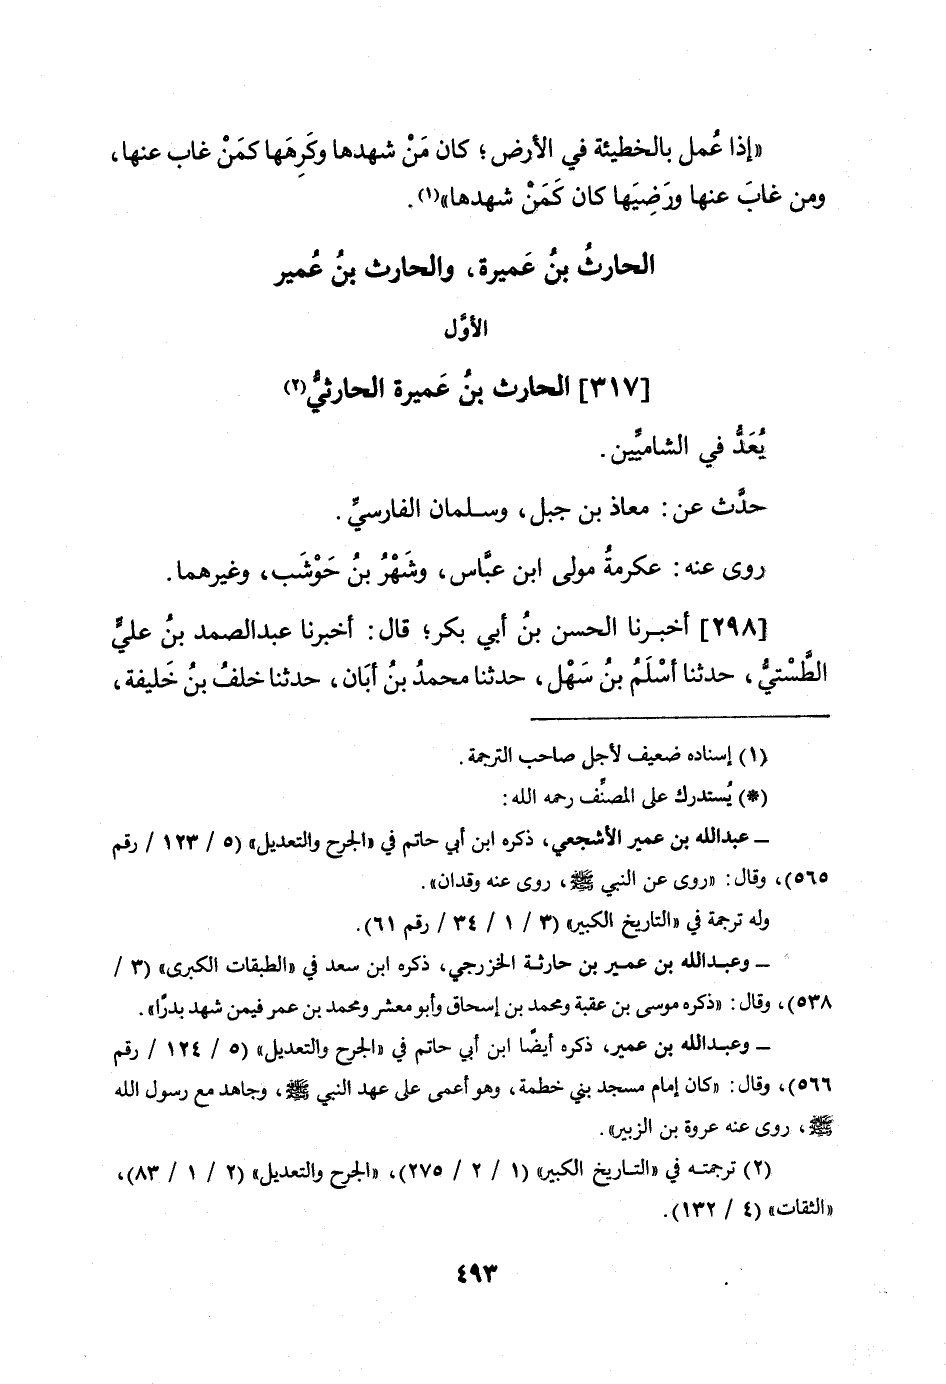 «إذا عُمل بالخطيئة في الأرض؛ كان مَنْ شهدها وكَرِهَها كمَنْ غاب عنها،
ومن غابَ عنها ورَضِيَها كان كَمَنْ شهدها»(١).
الحارثُ بنُ عَميرة، والحارث بنُ عُمير
الأوَّل
[٣١٧] الحارث بنُ عَميرة الحارثيُّ(٢)
يُعَدُّ في الشاميِّين.
حدَّث عن: معاذ بن جبل، وسلمان الفارسيِّ.
روى عنه: عكرمةُ مولى ابن عبَّاس، وشَهْرُ بنُ حَوْشَب، وغيرهما.
[٢٩٨] أخبرنا الحسن بنُ أبي بكر؛ قال: أخبرنا عبدالصمد بنُ عليٍّ
الطَّسْتيُّ، حدثنا أسْلَمُ بنُ سَهْل، حدثنا محمدُ بنُ أبَان، حدثنا خلفُ بنُ خَليفة،
(١) إسناده ضعيف لأجل صاحب الترجمة.
(*) يُستدرك على المصنِّف رحمه الله:
ــ عبدالله بن عمير الأشجعي، ذكره ابن أبي حاتم في «الجرح والتعديل» (٥ / ١٢٣ / رقم
٥٦٥)، وقال: «روى عن النبي ﷺ، روى عنه وقدان».
وله ترجمة في «التاريخ الكبير» (٣ / ١ / ٣٤ / رقم ٦١).
ــ وعبدالله بن عمير بن حارثة الخزرجي، ذكره ابن سعد في «الطبقات الكبرى» (٣ /
٥٣٨)، وقال: «ذكره موسى بن عقبة ومحمد بن إسحاق وأبو معشر ومحمد بن عمر فيمن شهد بدرًا».
ــ وعبدالله بن عمير، ذكره أيضًا ابن أبي حاتم في «الجرح والتعديل» (٥ / ١٢٤ / رقم
٥٦٦)، وقال: «كان إمام مسجد بني خطمة، وهو أعمى على عهد النبي ﷺ، وجاهد مع رسول الله
ﷺ، روى عنه عروة بن الزبير».
(٢) ترجمته في «التاريخ الكبير» (١ / ٢ / ٢٧٥)، «الجرح والتعديل» (٢ / ١ / ٨٣)،
«الثقات» (٤ / ١٣٢).
٤٩٣